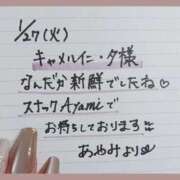 1/27(火)
キャメルイニ・タ様
なんだか新鮮でしたね♡
スナックAyamiで
お待ちしております
あやみより